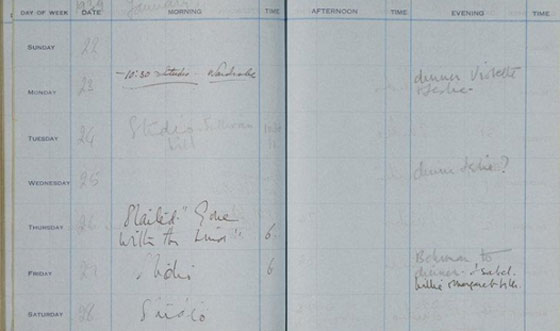 1939 January
DAY OF WEEK DATE MORNING TIME AFTERNOON TIME EVENING TIME
SUNDAY 22
MONDAY 23 - 10:30 Studio - Wardrobe dinner Violette
Leslie -
TUESDAY 24 Studio
till
WEDNESDAY 25 dinner Leslie?
THURSDAY 26 Started "Gone
With the Wind" 6.
FRIDAY 27 Studio 6 to
dinner -
SATURDAY 28 Studio